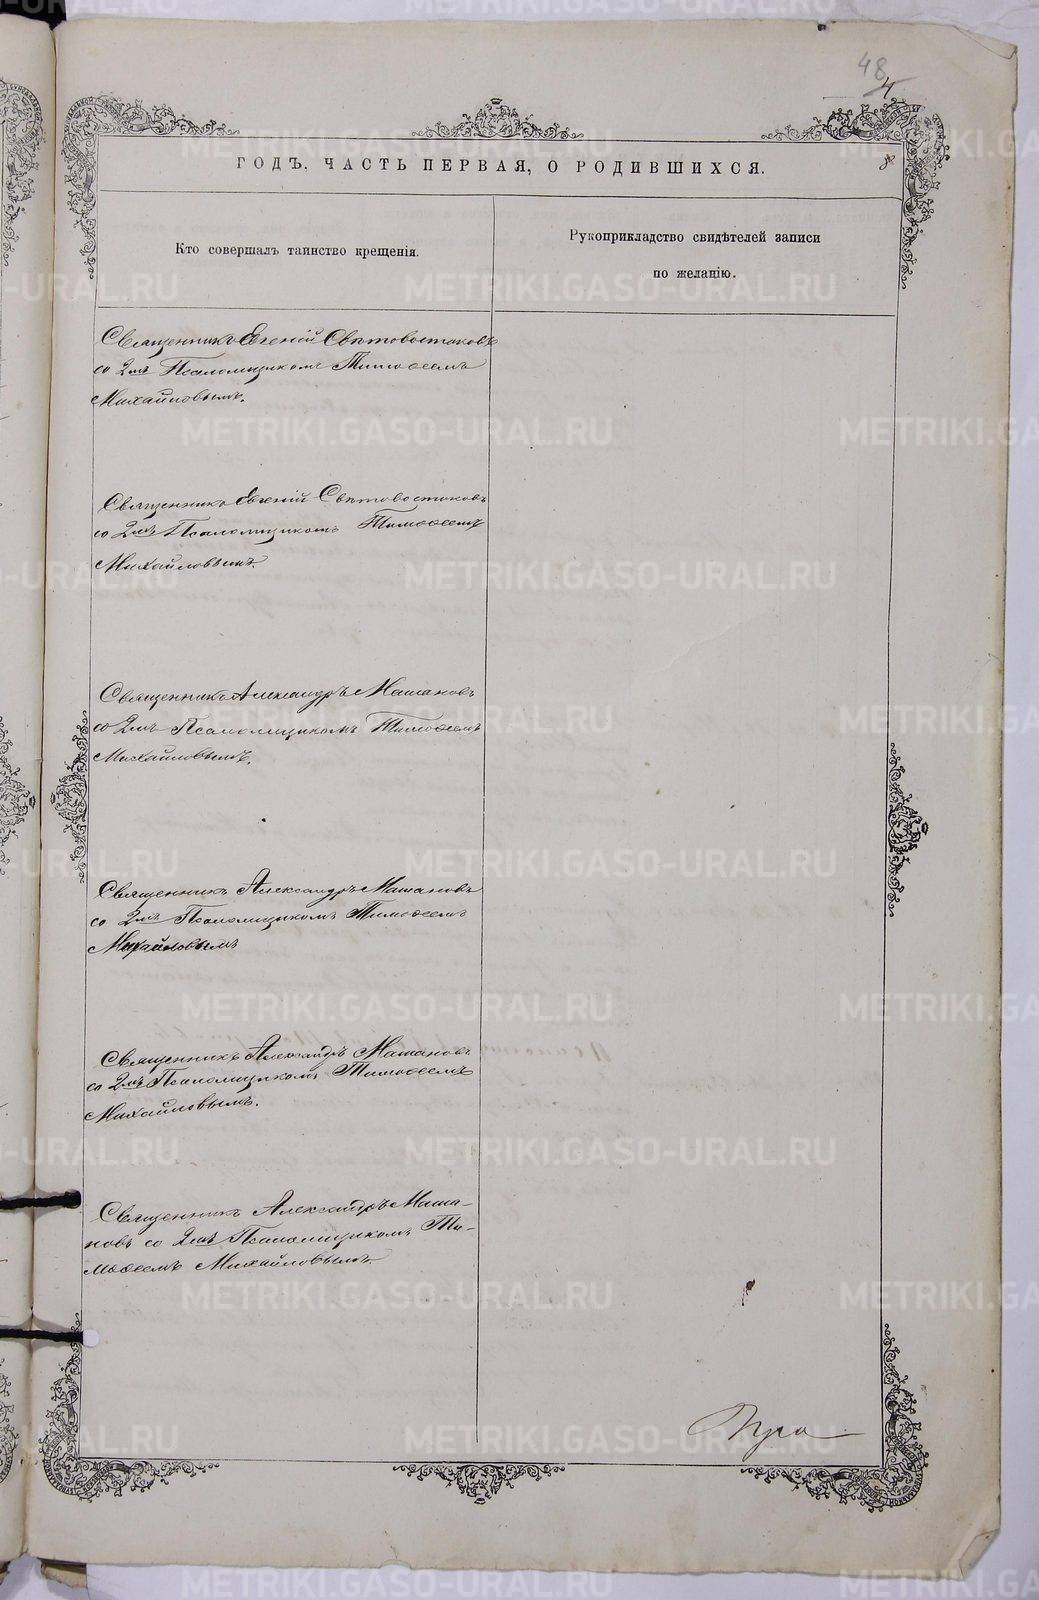 48
4
ГОДЪ. ЧАСТЬ ПЕРВАЯ, О РОДИВШИХСЯ.
8
Кто совершалъ таинство крещенія.
Рукоприкладство свидѣтелей записи
по желанію.
Священникъ Евгеній Свѣтовостоковъ
со 2мъ Псаломщикомъ Тимоѳеемъ
Михайловымъ.
Священникъ Евгеній Свѣтовостоковъ
со 2мъ Псаломщикомъ Тимоѳеемъ
Михайловымъ.
Священникъ Александръ Машановъ
со 2мъ Псаломщикомъ Тимоѳеемъ
Михайловымъ.
Священникъ Александръ Машановъ
со 2мъ Псаломщикомъ Тимоѳеемъ
Михайловымъ
Священникъ Александръ Машановъ
со 2мъ Псаломщикомъ Тимоѳеемъ
Михайловымъ.
Священникъ Александръ Маша-
новъ со 2мъ Псаломщикомъ Ти-
моѳеемъ Михайловымъ.
METRIKI.GASO-URAL.RU